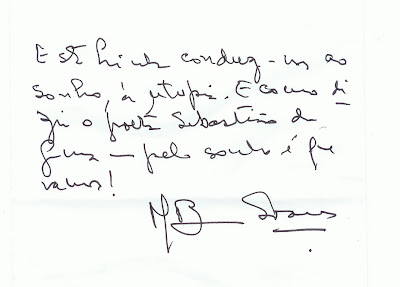 Esta linha conduz-nos ao
sonho, à utopia. E como di-
zia o poeta Sebastião da
Gama — pelo sonho é que
vamos!
MB